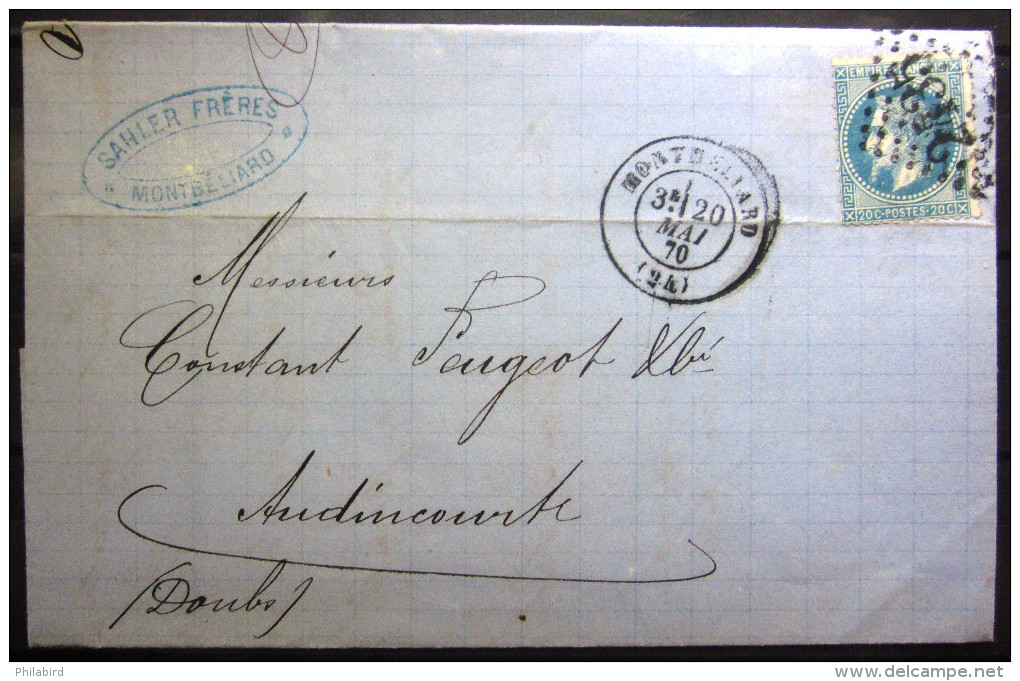 SAHLER FRÈRES
MONTBÉLIARD
EMPIRE FRANÇAIS
20 C - POSTES - 20 C
MONTBELIARD
3E/ 20
MAI
70
(24)
Messieurs
Constant Peugeot & Cie
Audincourt
(Doubs)
Philabird
www.delcampe.net